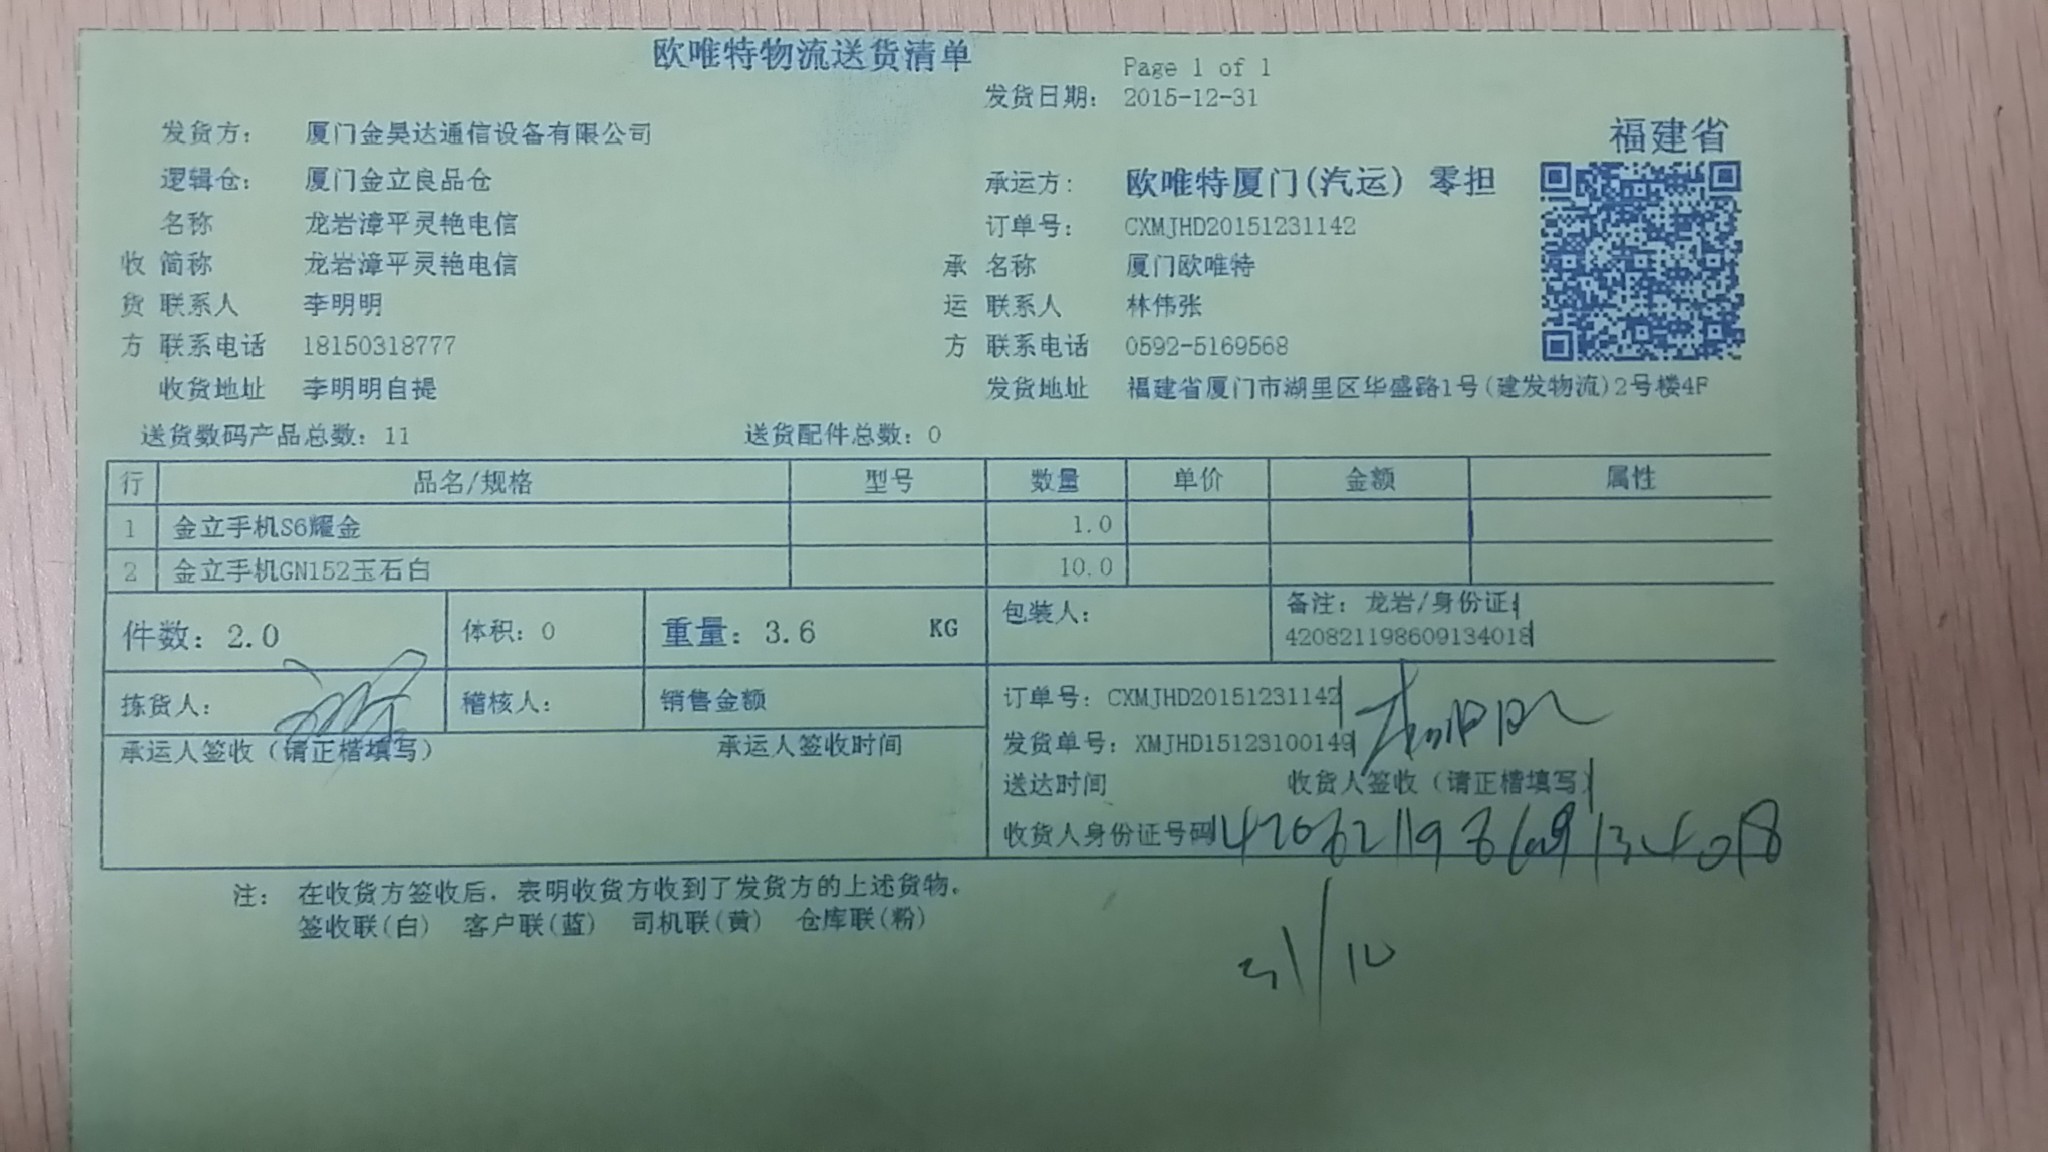 欧唯特物流送货清单
Page 1 of 1
发货日期: 2015-12-31
福建省
发货方: 厦门金昊达通信设备有限公司
逻辑仓: 厦门金立良品仓 承运方: 欧唯特厦门(汽运) 零担
名称 龙岩漳平灵艳电信 订单号: CXMJHD20151231142
收 简称 龙岩漳平灵艳电信 承 名称 厦门欧唯特
货 联系人 李明明 运 联系人 林伟张
方 联系电话 18150318777 方 联系电话 0592-5169568
收货地址 李明明自提 发货地址 福建省厦门市湖里区华盛路1号(建发物流)2号楼4F
送货数码产品总数: 11 送货配件总数: 0
行 品名/规格 型号 数量 单价 金额 属性
1 金立手机S6耀金 1.0
2 金立手机GN152玉石白 10.0
件数: 2.0 体积: 0 重量: 3.6 KG 包装人: 备注: 龙岩/身份证:
420821198609134018
拣货人: 稽核人: 销售金额 订单号: CXMJHD20151231142
承运人签收(请正楷填写) 承运人签收时间 发货单号: XMJHD15123100149
送达时间 收货人签收(请正楷填写)
收货人身份证号码 420821198609134018
注: 在收货方签收后, 表明收货方收到了发货方的上述货物。
签收联(白) 客户联(蓝) 司机联(黄) 仓库联(粉)
31/12